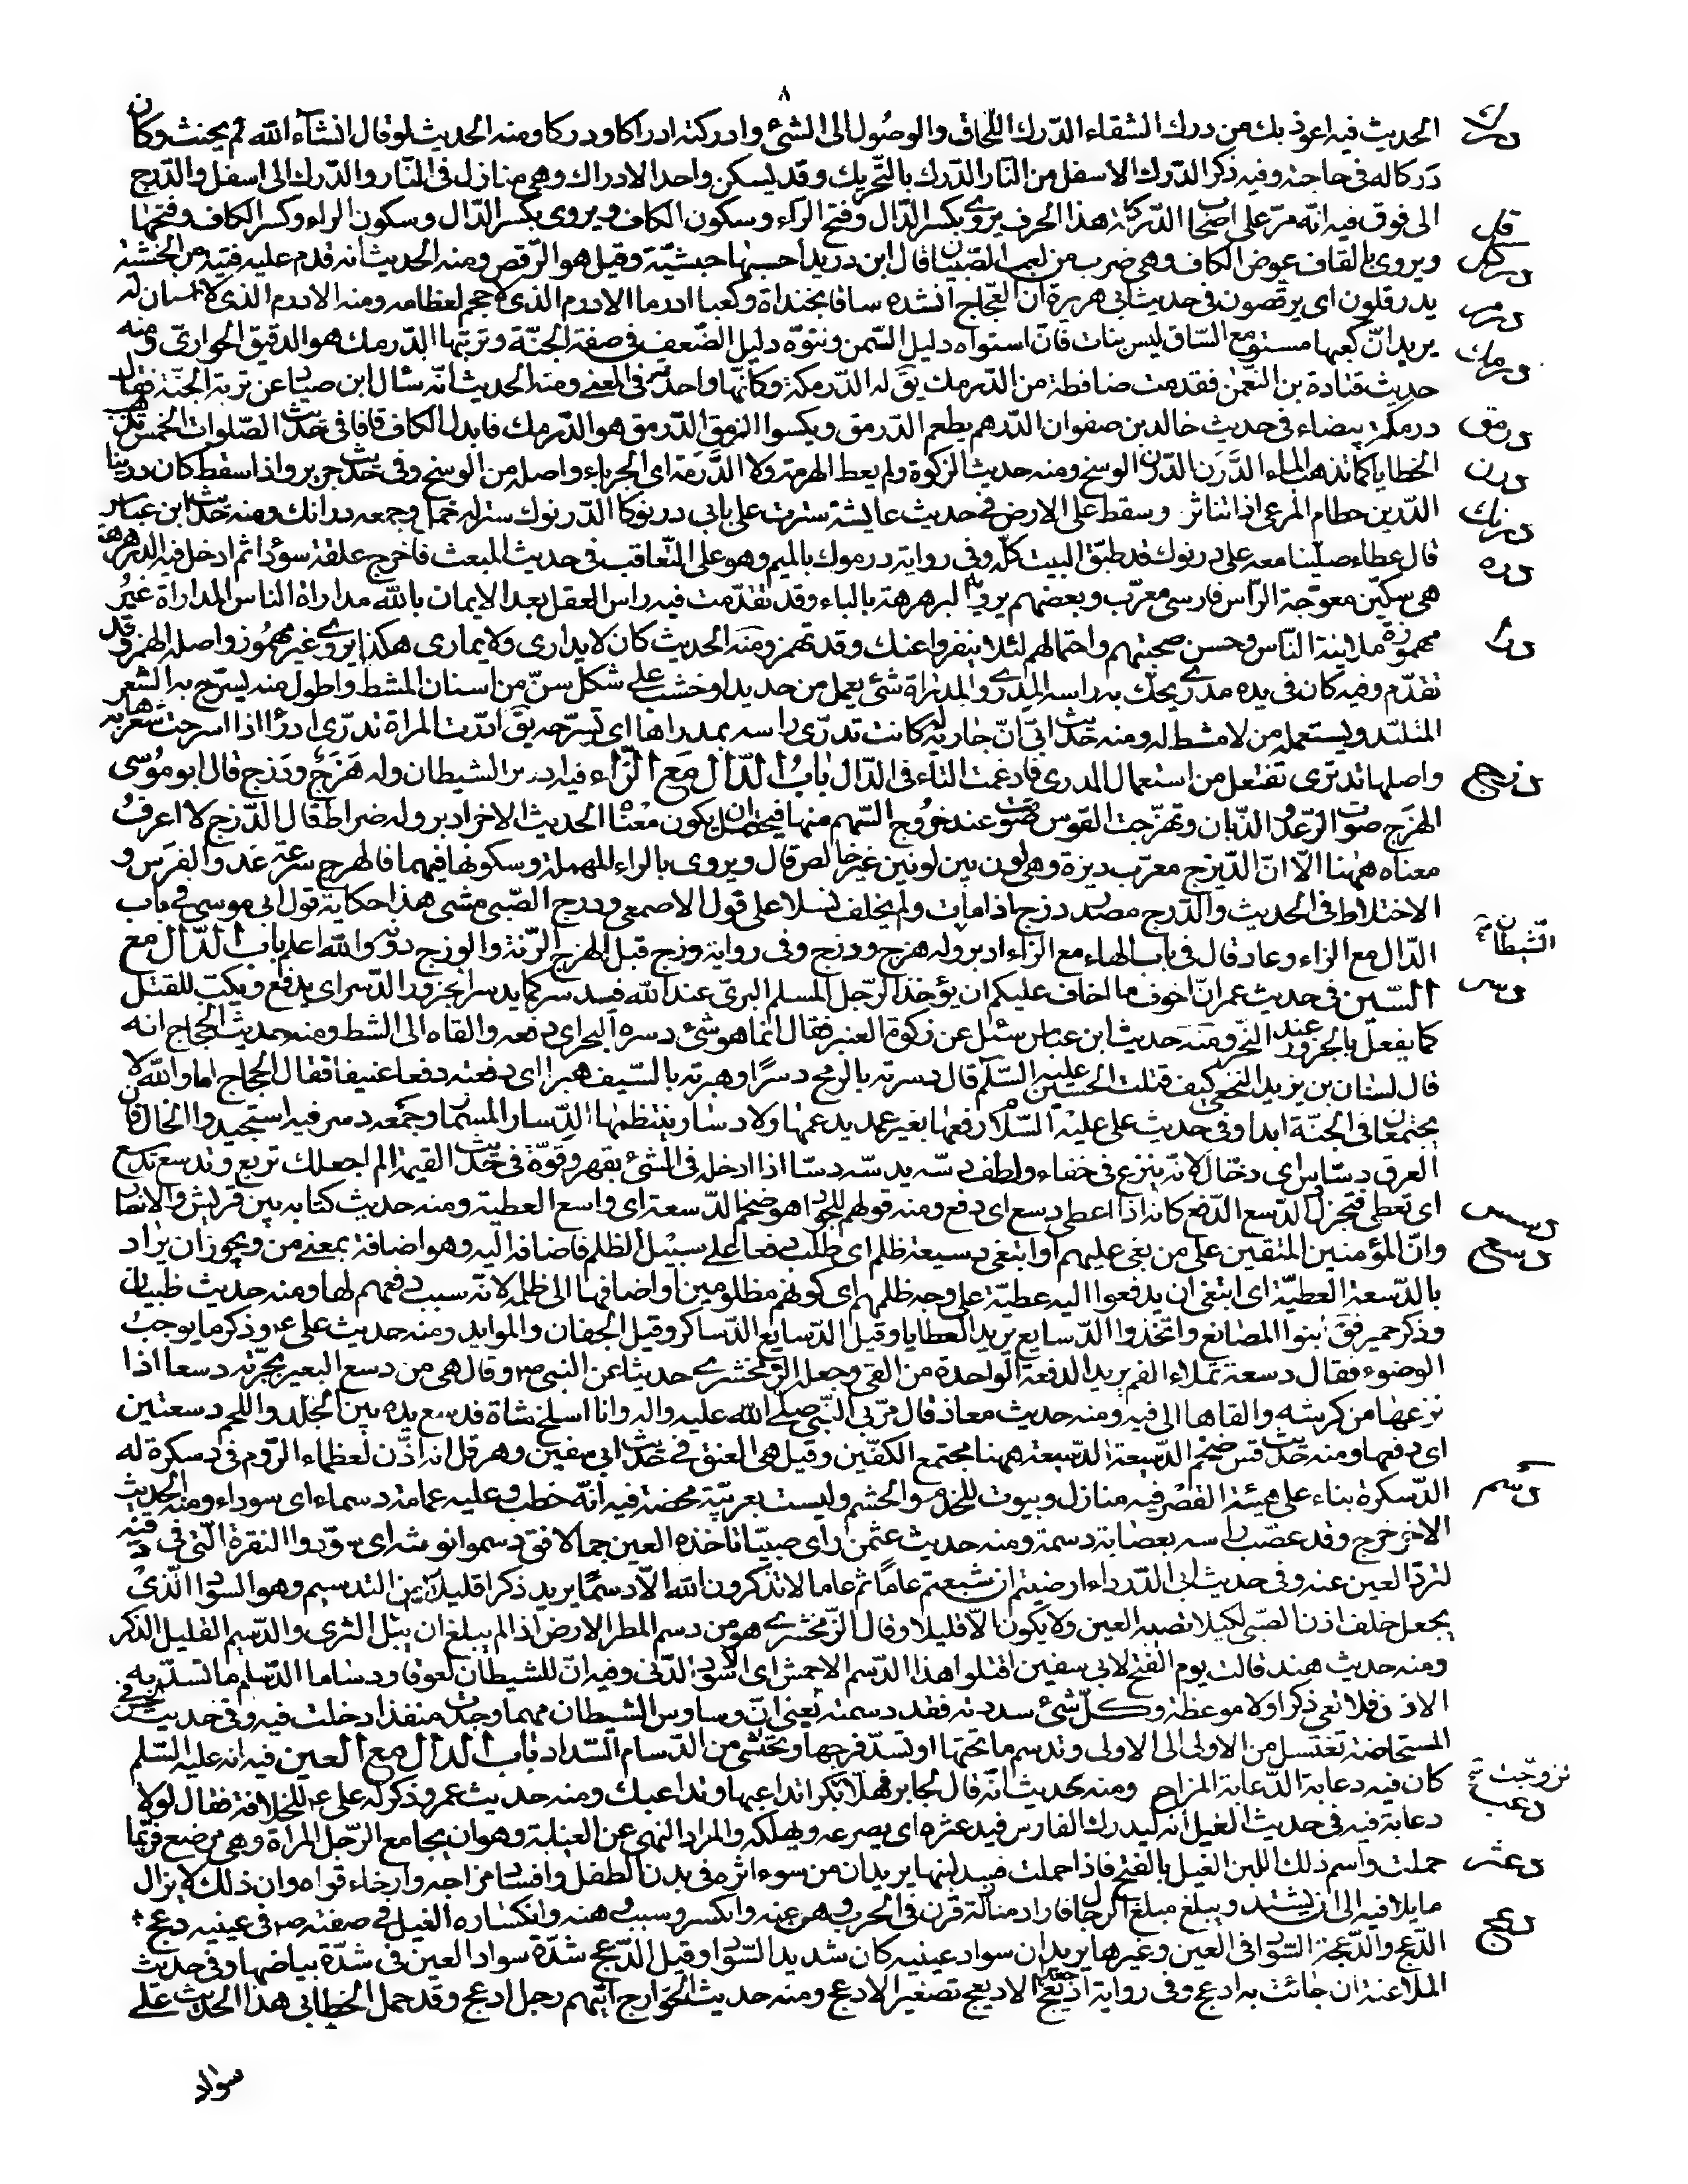 ٨
درك
الحديث فيه اعوذ بك من درك الشقاء الدّرك اللّحاق والوصُول الى الشئ وادركته ادراكا ودركا ومنه الحديث لو قال انشآء الله لم يحنث وكان
دَركا له فى حاجته وفيه ذكر الدّرك الاسفل من النّار الدّرك بالتّحريك وقد يسكن واحد الادراك وهى منازل فى النّار والدّرك الى اسفل والدّرج
الى فوق فيه انّه مرّ على اصحاب الدّركلة هذا الحرف يروى بكسر الدّال وفتح الرّاء وسكون الكاف ويروى بكسر الدّال وسكون الراء وكسر الكاف وفتحها
قل
دركل
ويروى بالقاف عوض الكاف وهى ضرب من لعب الصّبيان قال ابن دريد احسبها حبشيّة وقيل هو الرّقص ومنه الحديث انه قدم عليه فتية من الحبشة
يدرقلون اى يرقصون فى حديث ابى هريرة ان العجّاج انشده ساقا بخنداة وكعبا ادرما الادرم الذى لا حجم لعظامه ومنه الادرم الذى لا اسنان له
درم
يريد انّ كعبها مستو مع السّاق ليس بنات فانّ استواه دليل السّمن ونتوّه دليل الضّعيف فى صفة الجنّة وتربتها الدّرمك هو الدقيق الحوارىّ ومنه
درمك
حديث قتادة بن النعمن فقدمت ضافطة من الدّرمك يق له الدّرمكة وكانّها واحدته فى المعنى ومنه الحديث انّه سئال ابن صياد عن تربة الجنّة فقال
درمكة بيضاء فى حديث خالد بن صفوان الدّرهم يطعم الدّرمق ويكسوا النرمق الدّرمق هو الدّرمك فابدل الكاف قافا فى حديث الصّلوات الخمس تذهب
درمق
الخطايا كما يذهب الماء الدَّرَن الدّرن الوسخ ومنه حديث الزكوة ولم يعط الهرمة ولا الدَّرِنة اى الجرباء واصله من الوسخ وفى حديث جرير واذا سقط كان درينا
درن
الدّرين حطام المرعى اذا تناثر وسقط على الارض فى حديث عايشة سترت على بابى درنوكا الدّرنوك ستر له خمل وجمعه درانك ومنه حديث ابن عباس
درنك
قال عطاء صلّينا معه على درنوك قد طبّق البيت كلّه وفى رواية درموك بالميم وهو على التّعاقب فى حديث المبعث فاخرج علقة سوداء ثم ادخل فيه الدرهرهة
دره
هى سكّين معوجّة الرّاس فارسى معرّب وبعضهم يرويه البرهرهة بالباء وقد تقدّمت فيه راس العقل بعد الايمان بالله مداراة الناس المداراة غيرُ
مهموزة ملاينة النّاس وحسن صحبتهم واحتمالهم لئلا ينفروا عنك وقد تهمز ومنه الحديث كان لا يدارى ولا يمارى هكذا يروى غير مهمُوز واصله الهمز وقد
درا
تقدّم وفيه كان فى يده مدرى يحكّ به راسه المِدرى والمدراة شئ يعمل من حديد او خشب على شكل سنّ من اسنان المشط واطول منه يسرّح به الشعر
المتلبّد ويستعمله من لا مشط له ومنه حديث ابىّ انّ جارية له كانت تدّرى راسه بمدراها اى تسرّحه يق ادّرت المراة تدّرى ادّراءً اذا سرحت شعرها به
واصلها تدترى تفتعل من استعمال المدرى فادغمت التاء فى الدّال بابُ الدّال مَع الزّاء فيه ادبر الشيطان وله هَزَجٌ ودَزج قال ابو مُوسى
دزج
الهَزَج صوت الرّعد والذّبان وتهزّجت القوس صوّتت عند خرُوج السّهم منها فيحتمل ان يكون معْناا الحديث الاخر ادبر وله ضراط قال الدّزج لا اعرفُ
معناه ههنا الّا انّ الدّيزج معرّب ديزة وهى لون بين لونين غير خالص قال ويروى بالراء المهملة وسكونها فيهما فالهرج سرعة عَدو الفرَس و
الاختلاط فى الحديث والدّرج مصدر درج اذا مات ولم يخلف نسلا على قول الاصمعى ودرج الصّبى مشى هذا حكاية قول ابى موسى فى باب
الدّال مع الزاء وعاد قال فى باب الهاء مع الزاء ادبر وله هزج ودزج وفى رواية وزج قيل الهزج الرّنة والوزج دونه والله اعلم بابُ الدّال مع
الشّيطان
السّين فى حديث عمر انّ اخوف ما اخاف عليكم ان يؤخذ الرّجل المسلم البرىّ عند الله فيدسر كما يدسر الجزور الدّسر اى يدفع ويكبّ للقتل
دسر
كما يفعل بالجزور عند النّحر ومنه حديث ابن عباس سئل عن زكوة العنبر فقال انّما هو شئ دسره البحر اى دفعه والقاه الى الشط ومنه حديث الحجّاج انه
قال لسنان بن يزيد النخعى كيف قتلت الحسين عليه السّلم قال دسرته بالرمح دسرًا وهبرته بالسّيف هبرا اى دفعته دفعا عنيفا فقال الحجّاج اما والله لا
يجتمعان فى الجنّة ابدا وفى حديث على عليْه السّلام رفعها بغير عمد يدعمها ولا دسار ينتظمها الدّسار المسمار وجمعه دسر فيه استجيدوا الخال فان
العرق دسّاس اى دخّال لانّه ينزع فى خفاء ولطف دسّه يدسّه دسّا اذا ادخله فى الشئ بقهر وقوّة فى حديث القيمة الم اجعلك تربع وتدسع تدسع
دسس
اى تعطى فتجزل الدّسع الدّفع كانه اذا اعطى دسع اى دفع ومنه قولهم للجواد هو ضخم الدّسعة اى واسع العطية ومنه حديث كتابه بين قريش والانصار
دسع
وانّ المؤمنين المتقين على من بغى عليهم او ابتغى دسيعة ظلم اى طلب دفعا على سبيل الظلم فاضافه اليه وهو اضافة بمعنى من ويجوز ان يراد
بالدّسعة العطيّة اى ابتغى ان يدفعوا اليه عطيّة على وجه ظلمهم اى كونهم مظلومين او اضافها الى ظلمه لانّه سبب دفعهم لها ومنه حديث ظبيان
وذكر حمير فق ابنوا المصانع واتخذوا الدّسايع يريد العطايا وقيل الدّسايع الدّساكر وقيل الجفان والموايد ومنه حديث على ع وذكر ما يوجبُ
الوضوء فقال دسعة تملاء الفم يريد الدفعة الواحدة من القئ وجعله الزّمخشرى حديثا عن النبى ص وقال هى من دسع البعير بجرّته دسعا اذا
نزعها من كرشه والقاها الى فيه ومنه حديث معاذ قال مرّ بى النّبى صلى الله عليه واله وانا اسلخ شاة فدسع يده بين الجلد واللحم دسعتين
اى دفعها ومنه حديث قس ضخم الدّسيعة الدّسيعة ههنا مجتمع الكتفين وقيل هى العنق فى حديث ابى سفين وهرقل انه اذّن لعظماء الرّوم فى دسكرة له
الدّسكرة بناء على هيئة القصْر فيه منازل وبيوت للخدم والحشم وليست بعربيّة محضة فيه انّه خطب وعليه عمامة دسماء اى سوداء ومنه الحديث
دسم
الاخر خرج وقد عصّب راسه بعصابة دسمة ومنه حديث عثمن راى صبيّا تاخذه العين جمالا فق دسموا نونته اى سوّدوا النقرة الّتى فى ذقنه
لتردّ العين عنه وفى حديث ابى الدّرداء ارضيتم ان شبعتم عاماً ثم عاما لا تذكرون الله الّا دسمًا يريد ذكرا قليلا من التدسيم وهو السواد الّذى
يجعل خلف اذن الصّبى لكيلا تصيبه العين ولا يكون الّا قليلا وقال الزّمخشرى هو من دسم المطر الارض اذا لم يبلغ ان يبّل الثرى والدّسيم القليل الذكر
ومنه حديث هند قالت يوم الفتح لابى سفين اقتلوا هذا الدّسم الاحمش اى الاسود الدّنى وفيه انّ للشيطان لعوقا ودساما الدّسام ما تسدّ به
الاذن فلا تعى ذكرا ولا موعظة وكلّ شئ سددته فقد دسمته يعنى انّ وساوس الشيطان مهما وجدت منفذا دخلت فيه وفى حديث الحسن فى
المستحاضة تغتسل من الاولى الى الاولى وتدسم ما تحتها اى تسدّ فرجها وتحتشى من الدّسام السّداد بابُ الدّال مع العين فيه انه عليه السّلم
كان فيه دعابة الدّعابة المزاح ومنه حديث انّه قال لجابر فهلّا بكرا تداعبها وتداعبك ومنه حديث عمر وذكر له على ع للخلافة فقال لولا
تزوّجت
دعب
دعابة فيه فى حديث الغيل انه ليدرك الفارس فيدعثره اى يصرعه ويهلكه والمراد النهى عن الغيلة وهو ان يجامع الرّجل المراة وهى مرضع فربّما
حملت واسم ذلك اللبن الغيل بالفتح فاذا حملت فسد لبنها يريد ان من سوء اثره فى بدن الطفل وافساد مزاجه وارخاء قواه وان ذلك لا يزال
دعثر
مايلا فيه الى ان يشتد ويبلغ مبلغ الرجال فاذا اراد منازلة قرن فى الحرب وهن عنه وانكسر وسبب وهنه وانكساره الغيل فى صفته ص فى عينيه دعج
دعج
الدّعج والدّعجة السّواد فى العين وغيرها يريد ان سواد عينيه كان شديد السّواد وقيل الدّعج شدّة سواد العين فى شدّة بياضها وفى حديث
الملاعنة ان جائت به ادعج وفى رواية اديعج الاديعج تصغير الادعج ومنه حديث الخوارج ايتهم رجل ادعج وقد حمل الخطابى هذا الحديث على
سواد